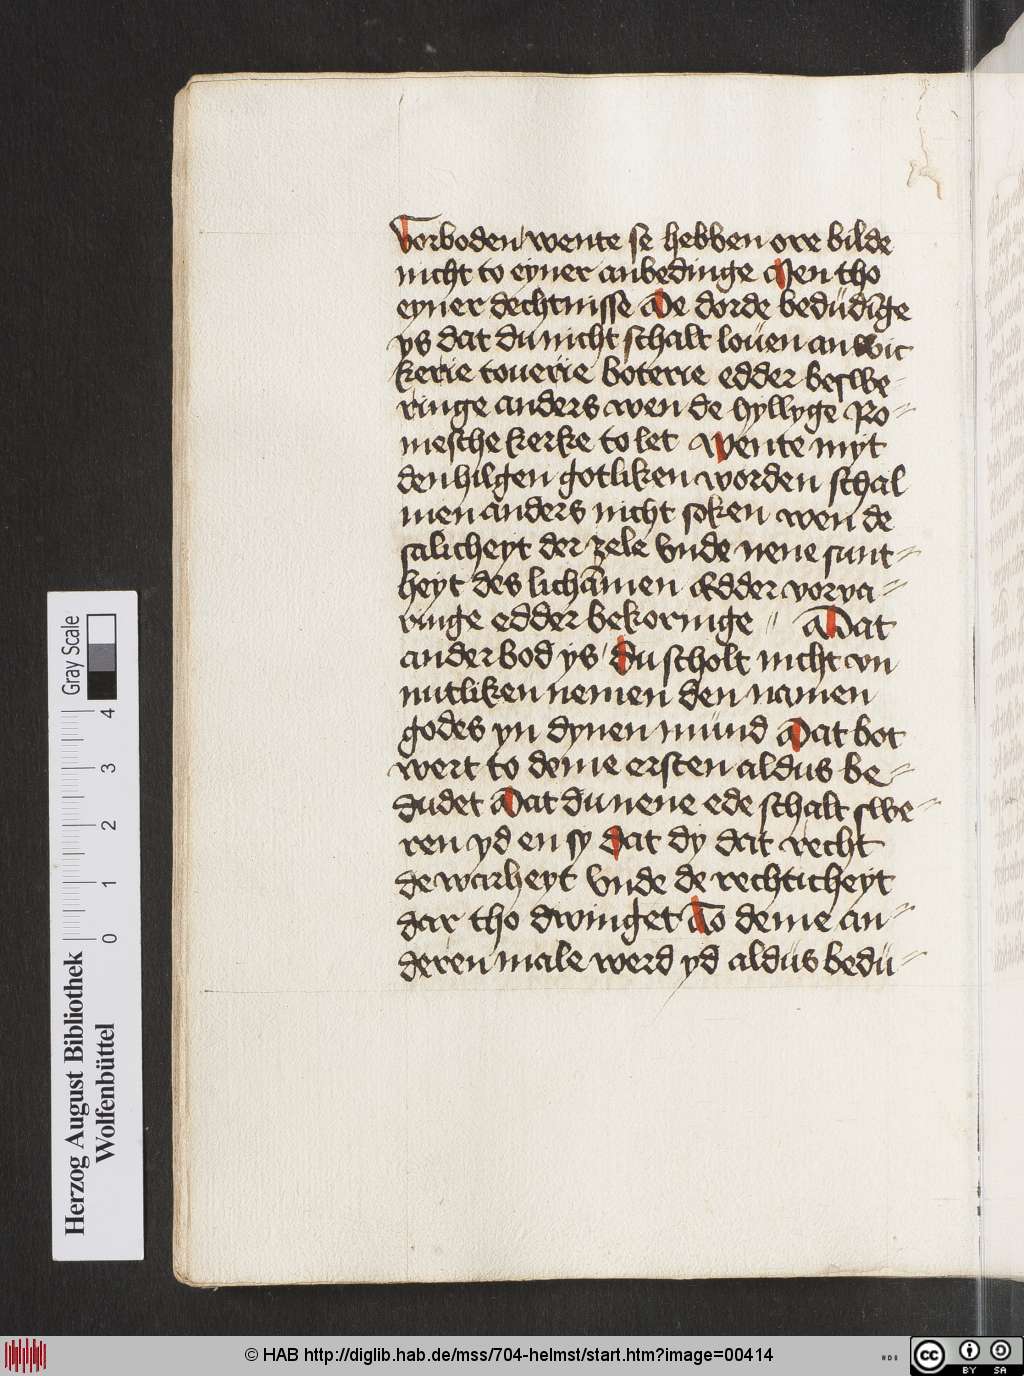 vorboden wente se hebben ore bilde
nicht to eyner anbedinge Men tho
eyner dechtnisse De dorde bedüdīge
ys dat du nicht schalt löuen an wic
kerie touerie boterie edder beswe-
ringe anders wen de hyllyge Ro-
mesche kerke to let Wente myt
den hilgen gotliken worden schal
men anders nicht soken wen de
salicheyt der zele Vnde nene sunt-
heyt des lichāmen Edder vorva-
ringe edder bekoringe // Dat
ander bod ys / du scholt nicht vn
nutliken nemen den namen
godes yn dynen mund Dat bot
wert to deme ersten aldus be-
dudet Dat du nene ede schalt swe-
ren yd en sy dat dy dat recht
de warheyt Vnde de rechticheyt
dar tho dwinget To deme an-
deren male werd yd aldüs bedü-
Herzog August Bibliothek
Wolfenbüttel
0 1 2 3 4
Gray Scale
© HAB http://diglib.hab.de/mss/704-helmst/start.htm?image=00414
HDB
cc BY SA